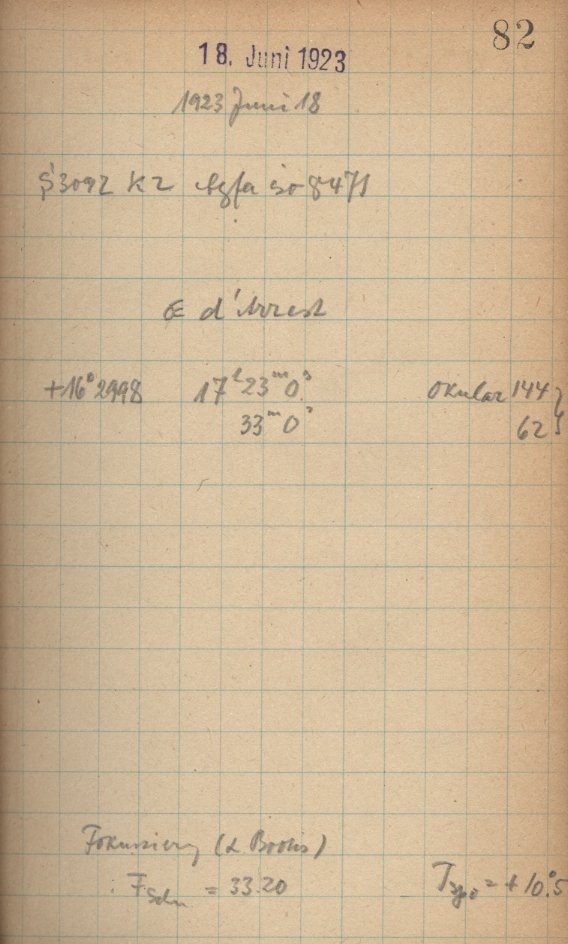 82
18. Juni 1923
1923 Juni 18
S 3092 K2 Agfa iso 8471
d'Arrest
+16° 2998 17h 23m 0s Okular 144
33m 0s 62
Fokussierung (α Bootis)
F = 33.20 T = +10°.5